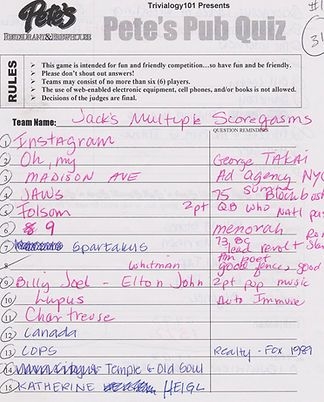 Trivialogy101 Presents
Pete's
RESTAURANT & BREWHOUSE
Pete's Pub Quiz
#1
31
RULES
➢ This game is intended for fun and friendly competition...so have fun and be friendly.
➢ Please don't shout out answers!
➢ Teams may consist of no more than six (6) players.
➢ The use of web-enabled electronic equipment, cell phones, and/or books is not allowed.
➢ Decisions of the judges are final.
Team Name: Jack's Multiple Scoregasms
QUESTION REMINDERS
1 Instagram
2 Oh, my George TAKAI
3 MADISON AVE Ad agency NYC
4 JAWS 75 Blockbust
5 Folsom 2pt QB who
6 9 menorah
7 Spartakus 73 BC lead revolt
8 Whitman Am poet good fences good
9 Billy Joel - Elton John 2pt pop music
10 Lupus Auto Immune
11 Chartreuse
12 Canada
13 COPS Realty - Fox 1989
14 Temple & Old Soul
15 KATHERINE HEIGL